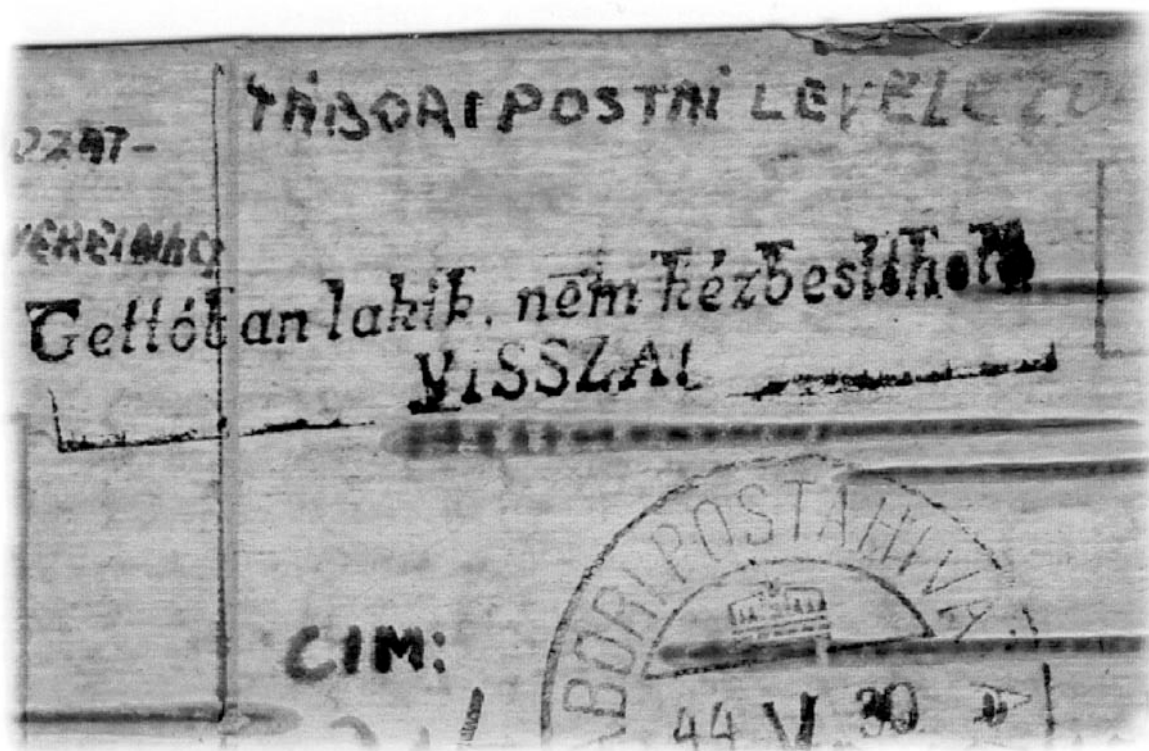 TÁBORI POSTAI LEVELEZŐ
Gettóban lakik, nem kézbesíthető
VISSZA!
TÁBORI POSTAHIVA
CIM:
44 V 30